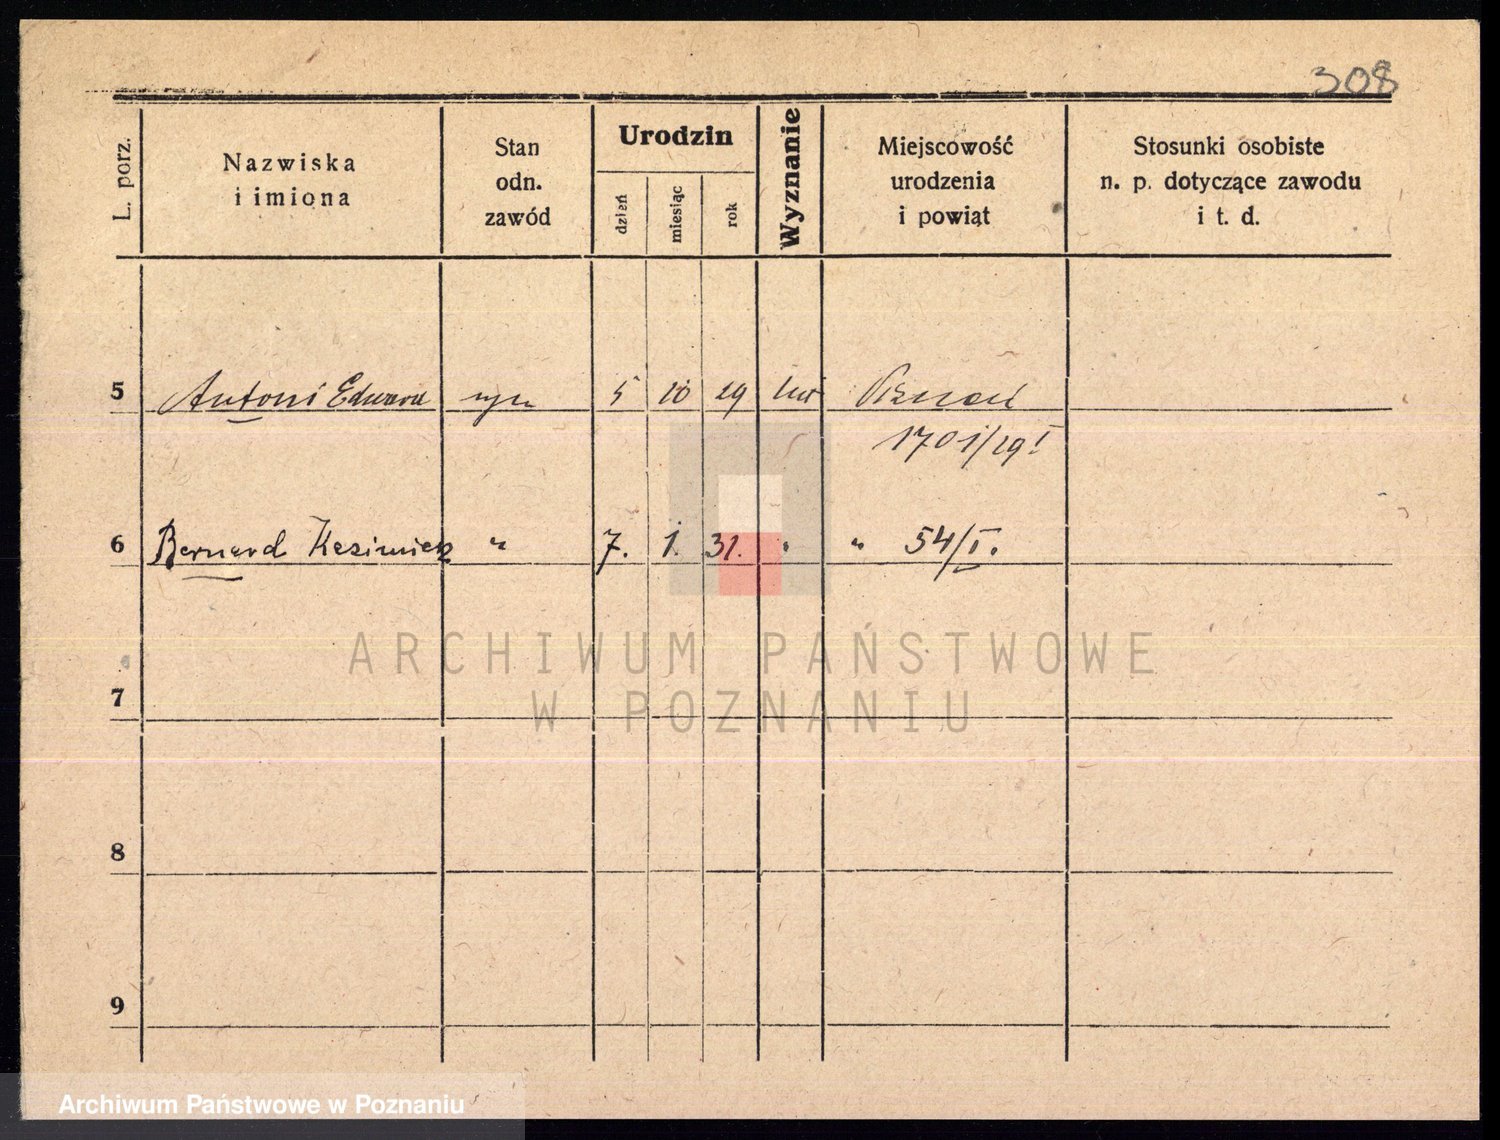 308
L. porz.
Nazwiska
i imiona
Stan
odn.
zawód
Urodzin
dzień
miesiąc
rok
Wyznanie
Miejscowość
urodzenia
i powiąt
Stosunki osobiste
n. p. dotyczące zawodu
i t. d.
5 Antoni Edward syn 5 10 29
1701/29 I
6 Bernard Kazimierz " 7. 1. 31. " " 54/I.
ARCHIWUM PAŃSTWOWE
W POZNANIU
7
8
9
Archiwum Państwowe w Poznaniu